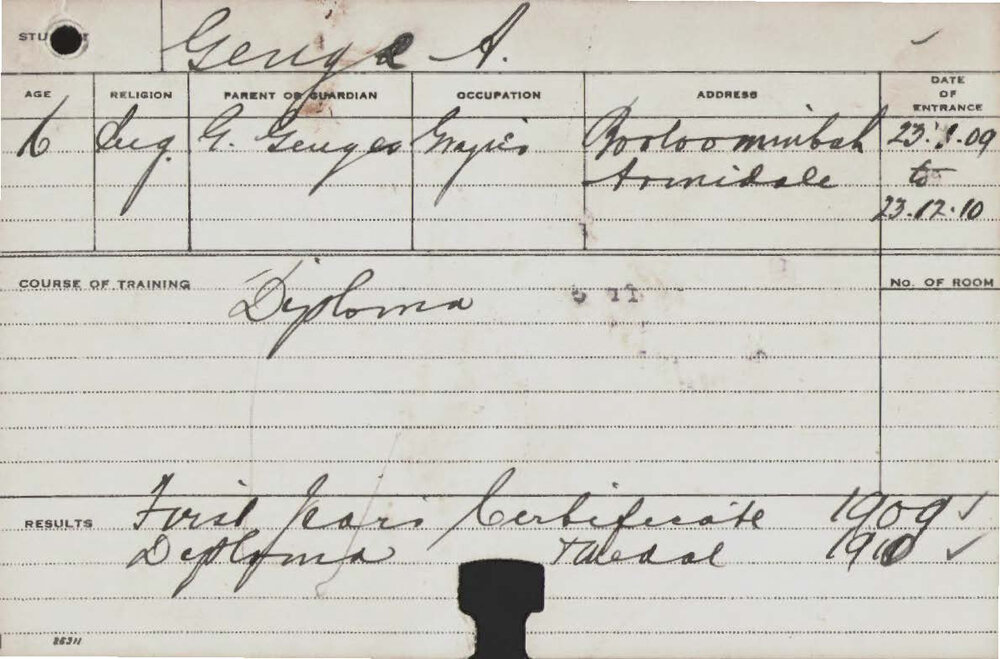 Genge A.
AGE RELIGION PARENT OR GUARDIAN OCCUPATION ADDRESS DATE OF ENTRANCE
16 G. Booloominbah 23. .09
Armidale to
23.12.10
COURSE OF TRAINING Diploma No. OF ROOM
RESULTS First Years Certificate 1909 ✓
Diploma + Medal 1910 ✓
26311